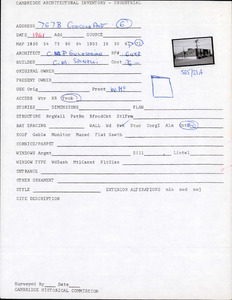 CAMBRIDGE ARCHITECTURAL INVENTORY - INDUSTRIAL
ADDRESS 767B Concord Ave 6
DATE 1961 Add SOURCE
MAP 1830 54 73 86 94 1903 16 30
ARCHITECT
BUILDER C.M. Cost
ORIGINAL OWNER
PRESENT OWNER
USE Orig Prsnt
ACCESS Wtr RR Truck
STORIES DIMENSIONS PLAN
STRUCTURE
BAY SPACING WALL Wd Stuc CorgI Alm
ROOF Gable Monitor Mnsrd Flat Sawth
CORNICE/PARPT
WINDOW Arngmt Sill Lintel
WINDOW TYPE WdSash MtlCasmt FixGlas
ENTRANCE
OTHER ORNAMENT
STYLE EXTERIOR ALTERATIONS min mod maj
SITE DESCRIPTION
Surveyed By Date
CAMBRIDGE HISTORICAL COMMISSION